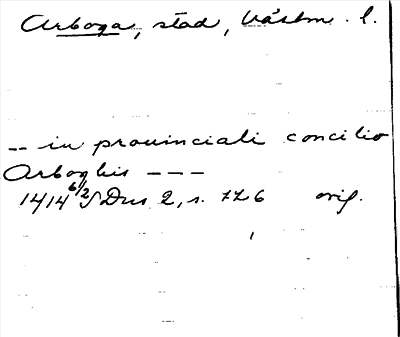 Arboga, stad, Västm. l.
-- in prouinciali concilio
Arboghis ---
1414 6/2 SDns 2, s. 726 orig.